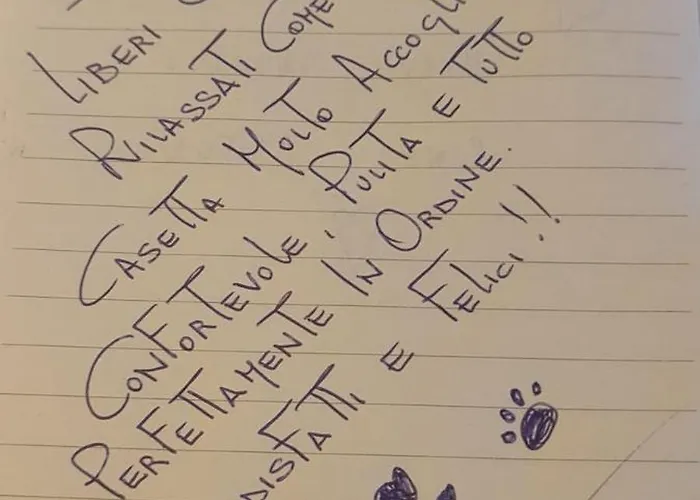 LIBERI
RILASSATI COME
CASETTA MOLTO ACCOGLI
CONFORTEVOLE, PULITA E TUTTO
PERFETTAMENTE IN ORDINE.
DISFATTI E FELICI!!